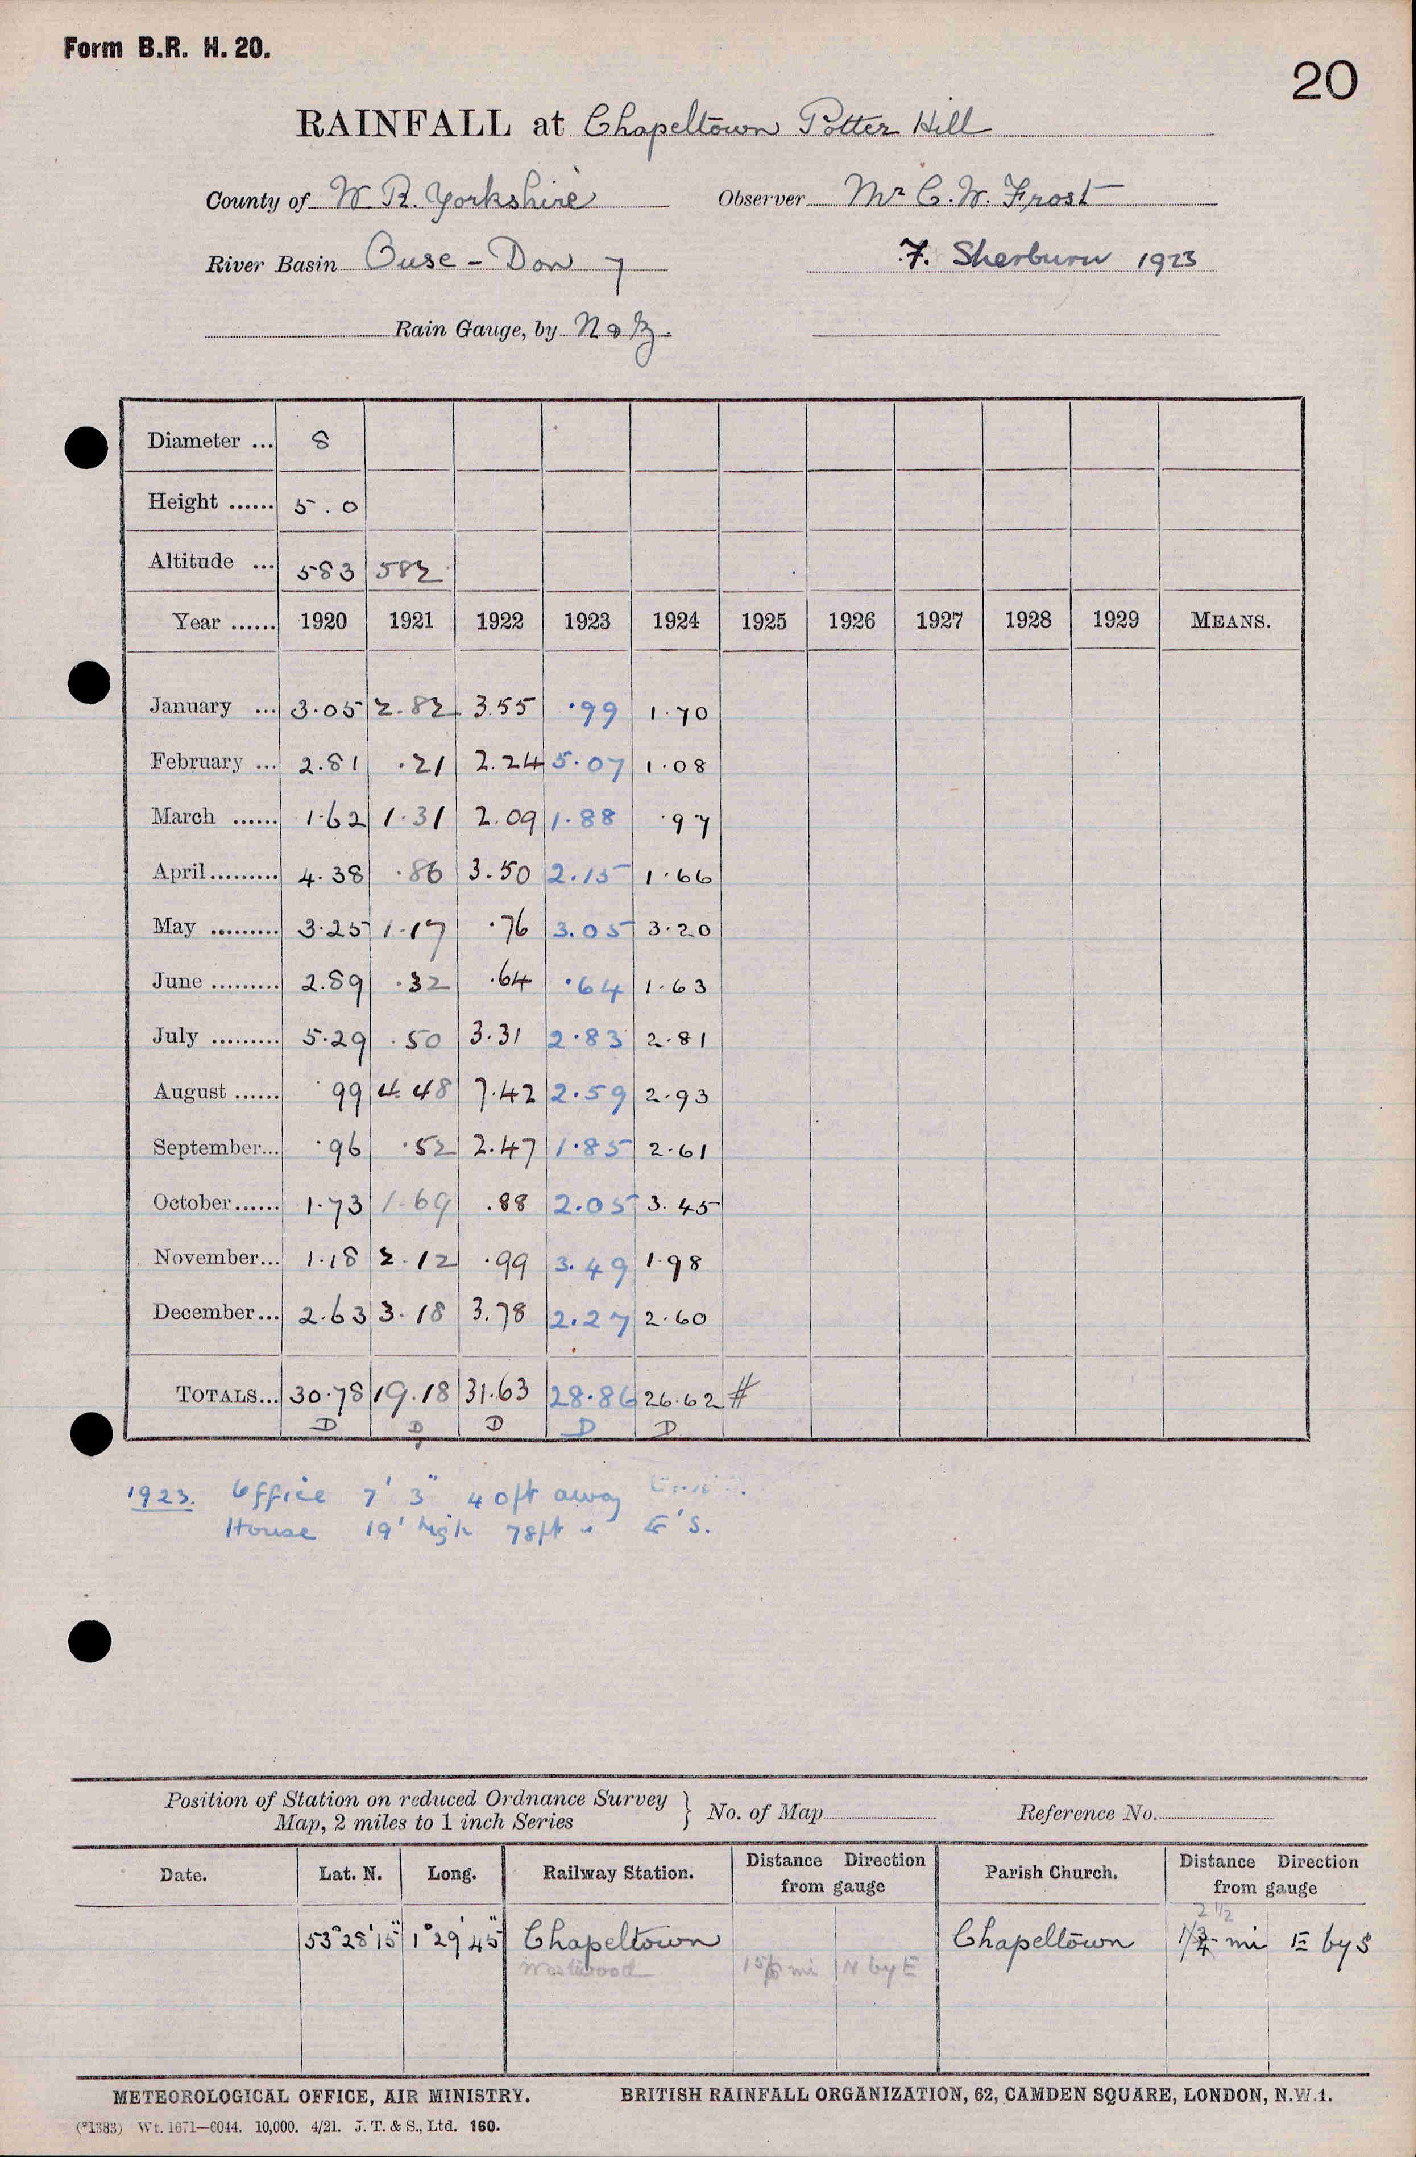 Form B.R. H. 20.
20
RAINFALL at Chapeltown Potter Hill
County of W. R. Yorkshire Observer Mr C. W. Frost
River Basin Ouse - Don 7 F. Sherburn 1923
Rain Gauge, by N & Z.
Diameter ... 8
Height ...... 5.0
Altitude ... 583 582
Year ...... 1920 1921 1922 1923 1924 1925 1926 1927 1928 1929 MEANS.
January ... 3.05 2.82 3.55 .99 1.70
February ... 2.81 .21 2.24 5.07 1.08
March ...... 1.62 1.31 2.09 1.88 .97
April ......... 4.38 .86 3.50 2.15 1.66
May ......... 3.25 1.17 .76 3.05 3.20
June ......... 2.89 .32 .64 .64 1.63
July ......... 5.29 .50 3.31 2.83 2.81
August ...... .99 4.48 7.42 2.59 2.93
September... .96 .52 2.47 1.85 2.61
October...... 1.73 1.69 .88 2.05 3.45
November... 1.18 2.12 .99 3.49 1.98
December... 2.63 3.18 3.78 2.27 2.60
TOTALS... 30.78 19.18 31.63 28.86 26.62 #
D D D D D
1923. Office 7' 3" 40ft away
House 19' high 78ft " E'S.
Position of Station on reduced Ordnance Survey } No. of Map Reference No.
Map, 2 miles to 1 inch Series
Date. Lat. N. Long. Railway Station. Distance Direction from gauge Parish Church. Distance Direction from gauge
2 1/2
53° 28' 15" 1° 29' 45" Chapeltown Chapeltown 1 3/4 mi E by S
Westwood mi N by E
METEOROLOGICAL OFFICE, AIR MINISTRY. BRITISH RAINFALL ORGANIZATION, 62, CAMDEN SQUARE, LONDON, N.W.1.
(*1383) Wt. 1671—6044. 10,000. 4/21. J. T. & S., Ltd. 160.